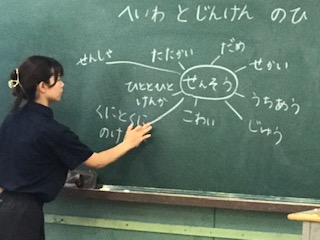 へいわ と じんけん の ひ
せんしゃ
たたかい
だめ
せかい
せんそう
ひととひと
けんか
うちあう
くにとくに
のけ
こわい
じゅう